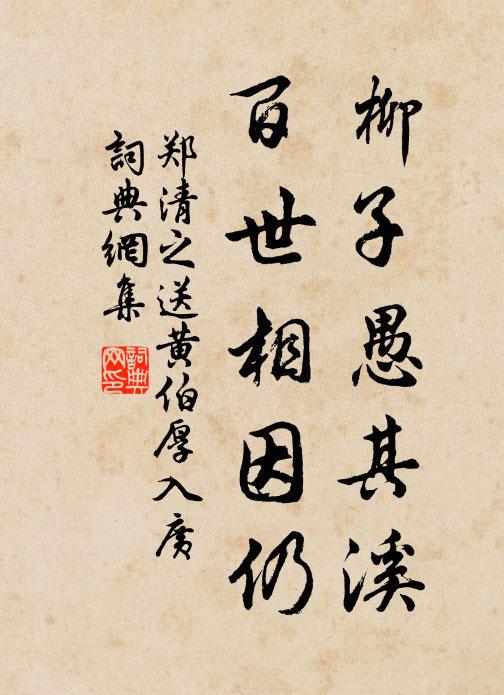 柳子愚其溪
百世相因仍
郑清之送黄伯厚入广
詞典網集
詞典网印